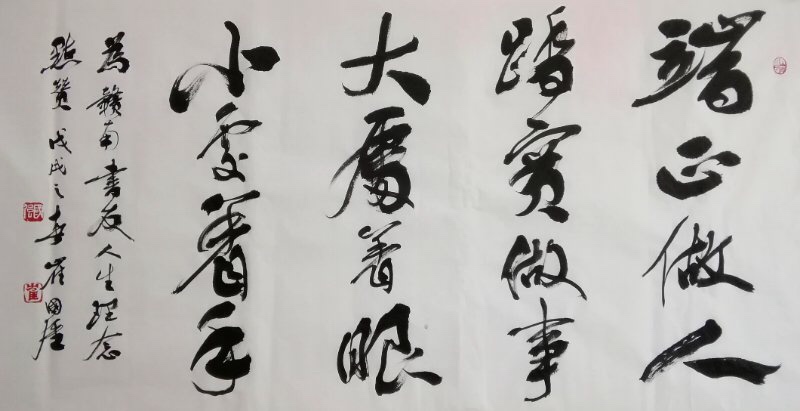 端正做人
踏實做事
大處着眼
小處着手
為贛南書友人生理念
點贊戊戌之春崔国